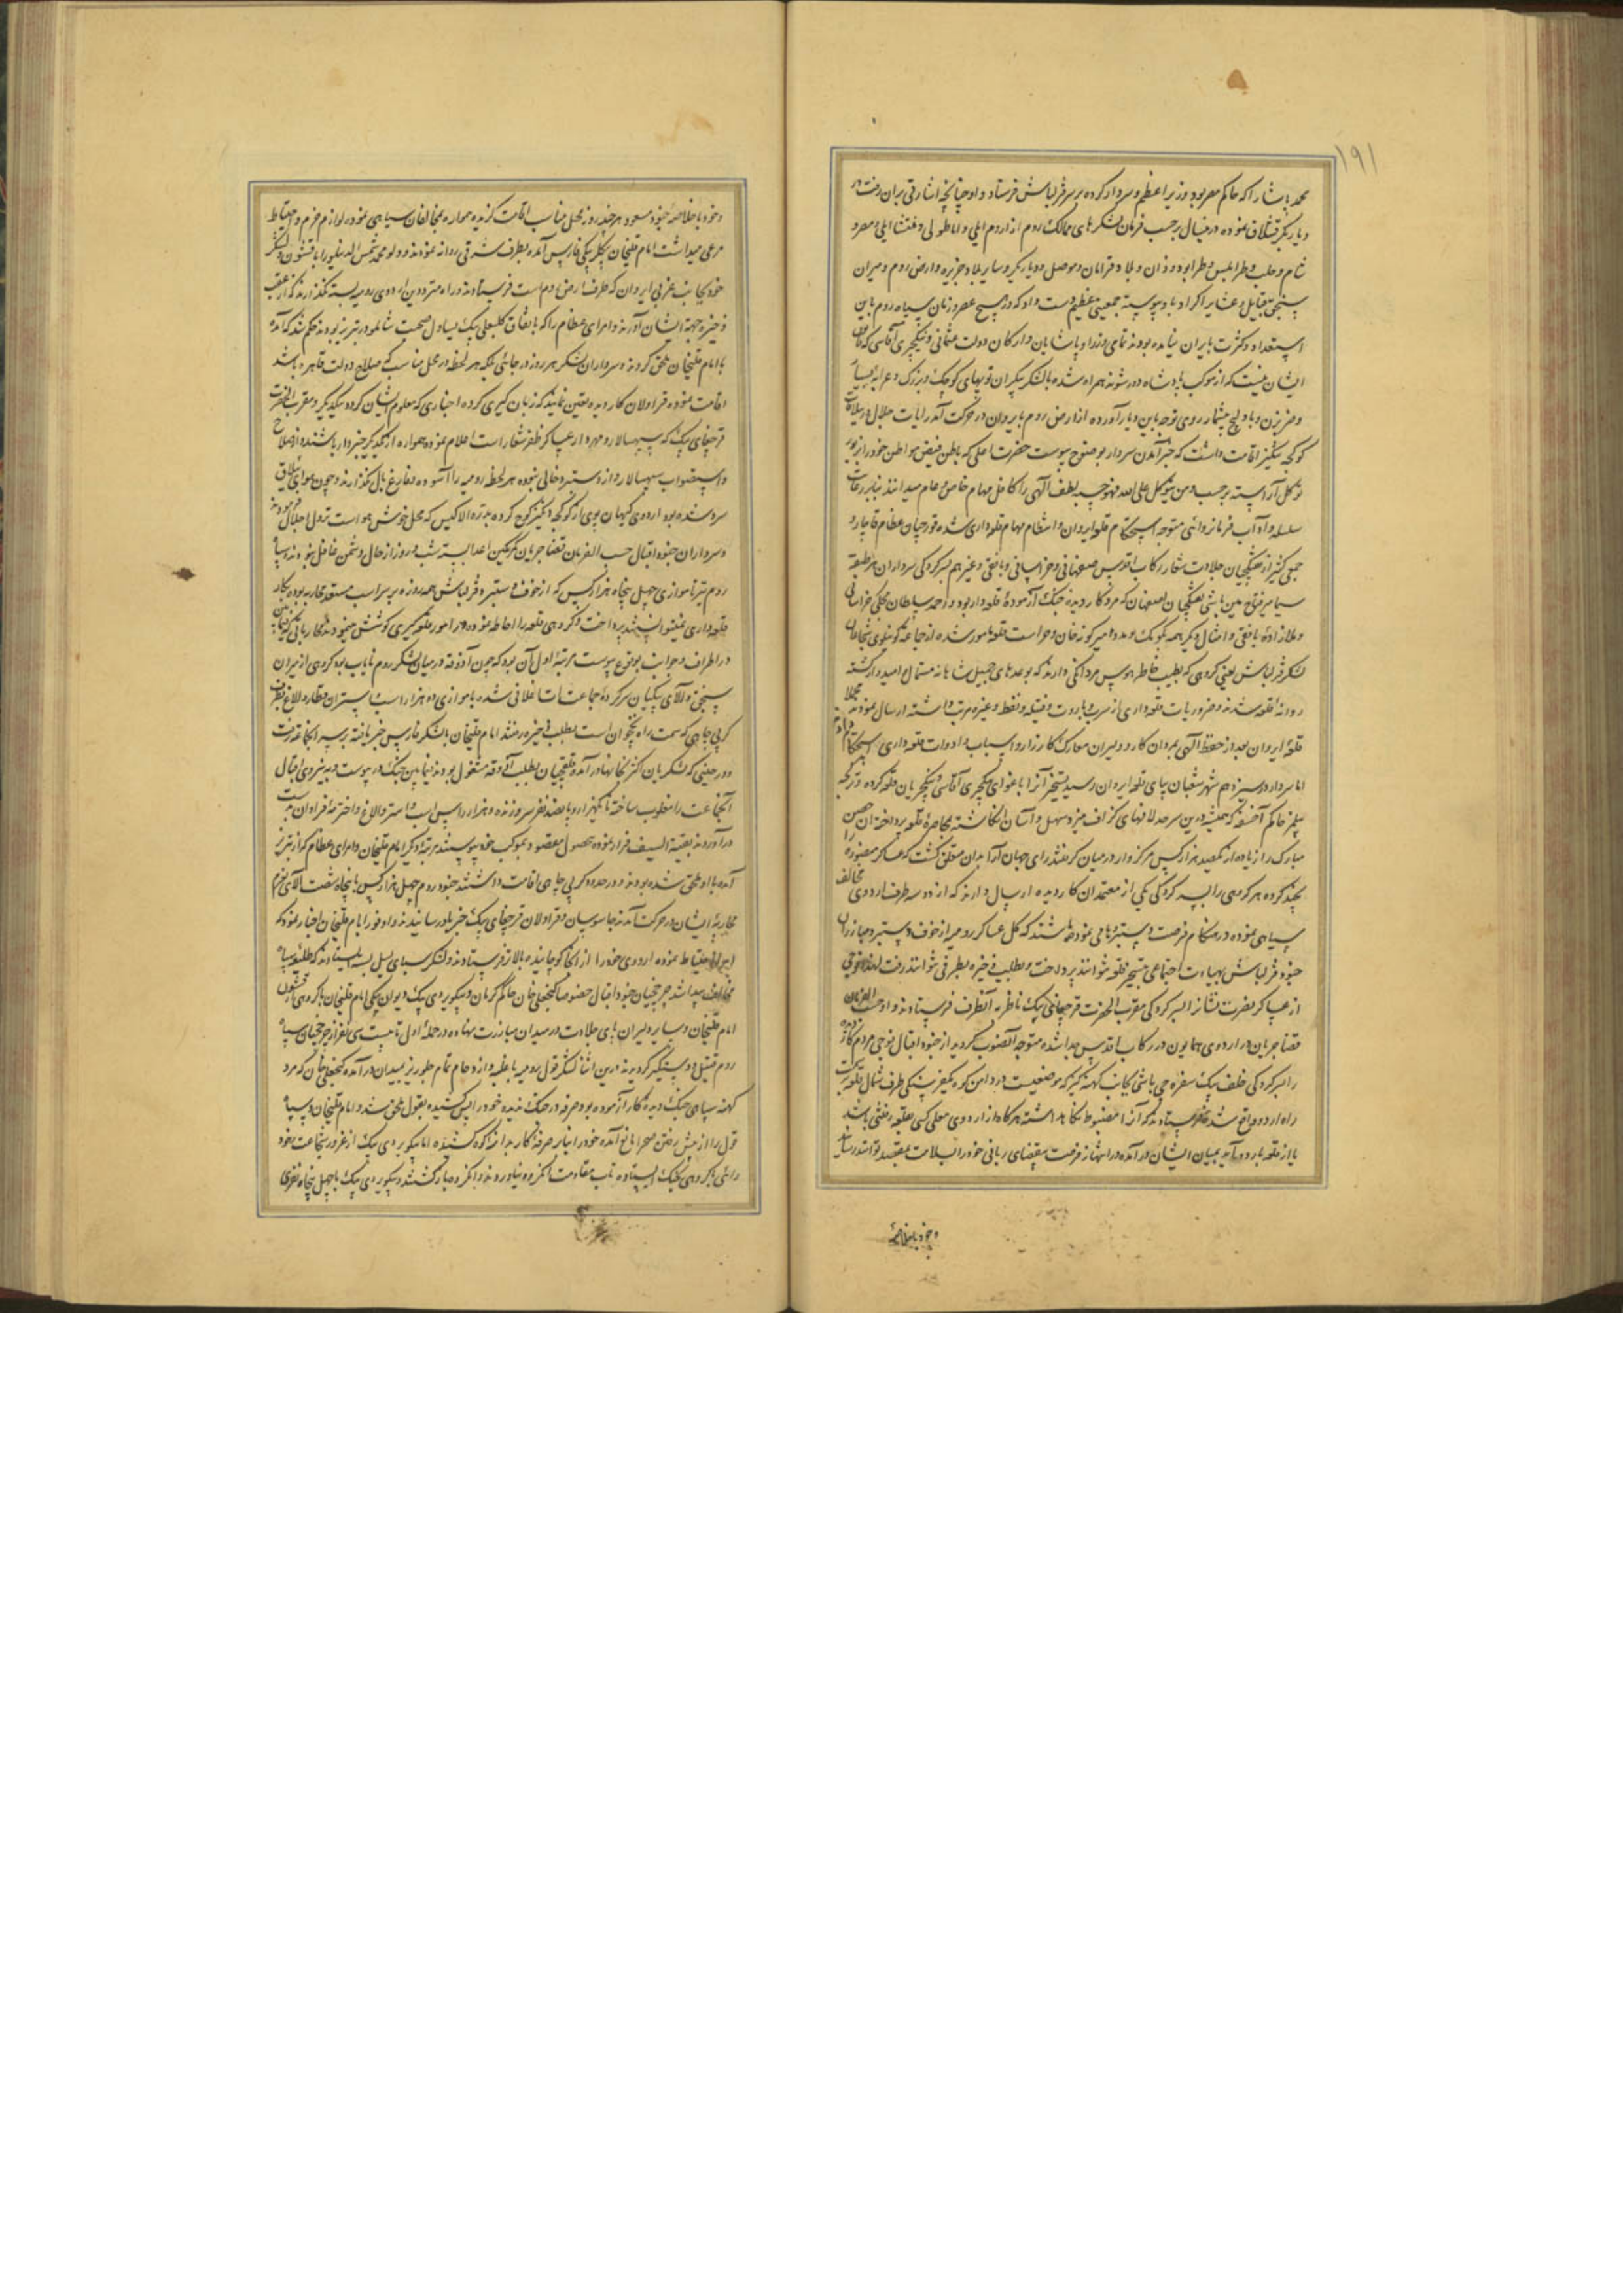 ۱۹۱
محمد پاشا را که حاکم مصر بود وزیر اعظم و سردار کرده بر سر قزلباش فرستاد و او چنانچه اشارتی بران رفت در
دیاربکر قشلاق نموده درینسال برحسب فرمان لشکرهای ممالک روم از اروم ایلی و اناطولی و منتشا ایلی و مصر و
شام و حلب و طرابلس و طرابوزن و وان و بلاد قرامان و موصل و دیاربکر و سایر بلاد جزیره و ارض روم و میران
سنجق قبایل و عشایر اکراد باو پیوسته جمعیتی عظیم دست داد که در هیچ عصر و زمان سپاه روم باین
استعداد و کثرت بایران نیامده بودند تمامی وزرا و پاشایان و ارکان دولت عثمانی و ینکچری آقاسی که قانون
ایشان نیست که از موکب پادشاه دور شوند همراه شده با لشکر بیکران توپهای کوچک و بزرک و عرابه بسیار
و ضربزن و بادلیج بیشمار روی توجه باین دیار آورده از ارض روم بایروان در حرکت آمد رایات جلال در ییلاقات
کوکجه تنکیز اقامت داشت که خبر آمدن سردار بوضوح پیوست حضرت اعلی که باطن فیض مواطن خود را بزیور
توکل آراسته برحسب و من یتوکل علی الله فهو حسبه لطف الهی را کافل مهام خاص و عام میدانند بنابر رعایت
سلسله و آداب فرمانروائی متوجه استحکام قلعه ایروان و انتظام مهام قلعه داری شده قورچیان عظام قاجار و
جمعی کثیر از تفنکچیان جلادت شعار رکاب اقدس صفهانی و خراسانی و بافقی و غیرهم بسرکردکی سرداران هر طبقه
سیما میر فتاح مین باشی تفنکچیان اصفهان که مرد کاردیده جنک آزموده قلعه دار بود و احمد سلطان خراسانی
و ملازاده بافقی و امثال دیکر همه بکومک و مدد امیر کونه خان و حراست قلعه مامور شده از جماعه کونیلوی شجاعان
لشکر قزلباش یعنی کروهی که بطیب خاطر هوس مردانکی دارند که بوعدهای جمیل شاهانه مستمال و امیدوار کشته
روانه قلعه شدند و ضروریات قلعه داری از سرب و باروت و فتیله و نفط و غیره مرتب داشته ارسال نمودند مجملا
قلعه ایروان بعد از حفظ الهی بمردان کار و دلیران معارک کارزار و اسباب و ادوات قلعه داری استحکام داده
اما سردار در سیزدهم شهر شعبان بپای قلعه ایروان رسید تسخیر آنرا باغوای ینکچری آقاسی و ینکچریان وقلعه کرده تکجه
حاکم آخسقه که همیشه درین سرحد لافهای کزاف میزد سهل و آسان انکاشته بمحاصره قلعه پرداخت آن حصن
مبارک را زیاده از یکصد هزار کس مرکزوار در میان کرفتند رای جهان آرا بدان متعلق کشت که عساکر منصوره را
بچند کروه هر کروهی را بسرکردکی یکی از معتمدان کاردیده ارسال دارند که از دو سه طرف اردوی مخالف
سیاهی نموده در هنکام فرصت دستبردها می نموده باشند که کل عساکر رومیه از خوف دستبرد مبارزان
جنود قزلباش بهیأت اجتماعی بتسخیر قلعه نتوانند پرداخت و بطلب ذخیره بطرفی نتوانند رفت لهذا فوجی
از عساکر نصرت نشان را بسرکردکی مقرب الحضرت قرچغای بیک ناظر به آنطرف فرستادند و او حسب الفرمان
قضا جریان از اردوی همایون در رکاب اقدس جدا شده متوجه آنصوب کردید از جنود اقبال فوجی مردم کار
را بسرکردکی خلف بیک سفره چی باشی بجانب کهنه کیر که موضعیست در دامن کوه یکفرسنکی طرف شمال قلعه بر سمت
راه اردو واقع شده فرستادند که آنرا مضبوط نکاهداشته هرکاه از اردوی معلی کسی بقلعه رفتنی باشد
یا از قلعه باردو آید بمیان ایشان درآمده در انتهاز فرصت بمقتضای ربانی خود را بسلامت بمقصد توانند رسانید
و خود با خلاصه
و خود با خلاصه جنود مسعود هر چند روز بمحل مناسب اقامت کزیده همواره بمخالفان سیاهی نموده لوازم حزم و احتیاط
مرعی میداشت امام قلیخان بیکلربیکی فارس آمده بطرف شرقی روانه نمودند و ولو محمد شمس الدینلو را با قشون و لشکر
خود بجانب غربی ایروان که طرف ارض روم است فرستادند در راه مترددین اردوی رومیه بسته نکذارند که از عقب
ذخیره جهة ایشان آورند و امرای عظام را که باتفاق کلبعلی بیک یساول صحبت شاملو در تبریز بودند حکم شد که آمده
بامام قلیخان ملحق کردند و سرداران لشکر هر روز در جائی بلکه هر لحظه در محل مناسب که صلاح دولت قاهره باشد
اقامت نموده قراولان کاردیده تعین نمایند که زبان کیری کرده اخباری که معلوم ایشان کردد بیکدیکر و مقرب الحضرت
قرچغای بیک که سپهسالار و مهردار عساکر ظفر شعار است اعلام نموده همواره از یکدیکر خبردار باشند و از صلاح
و استصواب سپهسالار و از دستبرد خالی نبوده هر لحظه رومیه را آسوده و فارغ بال نکذارند و چون هوای ییلاق
سرد شده بود اردوی کیهان پوی از کوکجه دنکیز کوچ کرده بدره الاکیس که محل خوش هواست نزول اجلال فرمودند
و سرداران جنود اقبال حسب الفرمان قضا جریان کمرکین اعدا بسته شب و روز از حال دشمن غافل نبودند سپاه
روم نیز تا موازی چهل پنجاه هزار کس که از خوف دستبرد قزلباش همه روزه بر سر اسب مستعد محاربه بوده بکار
قلعه داری نمیتوانستند پرداخت و کروهی قلعه را احاطه نموده در امور قلعه کیری کوشش مینمودند
در اطراف و جوانب بوقوع پیوست مرتبه اول آن بود که چون آذوقه در میان لشکر روم نایاب بود کروهی از میران
سنجق و آلای بیکیان سرکرده جماعت شده با موازی ده هزار اسب و استران قطار و الاغ بطرف
کرنی چای که سمت راه نخجوان است بطلب ذخیره رفتند امام قلیخان با لشکر فارس خبر یافته بر سر آنجماعت رفت
و در حینی که لشکریان اکثر بکانها درآمده و قلقچیان بطلب آذوقه مشغول بودند فیمابین جنک درپیوست و به نیروی اقبال
آنجماعت را مغلوب ساخته تا یکهزار و پانصد نفر سر و زنده و هزار راس اسب و استر و الاغ و اخترمه فراوان بدست
درآوردند بقیة السیف فرار نموده بحصول مقصود بموکب خود پیوستند مرتبه دیکر امام قلیخان و امرای عظام که از تبریز
آمده باو ملحق شده بودند و در حدود کرنی چای اقامت داشتند جنود روم چهل هزار کس با پنجاه شصت آلای بعزم
محاربه ایشان در حرکت آمدند جاسوسان و قراولان قرچغای بیک خبر باو رسانیدند و او فورا بامام قلیخان اخبار نمود که
احتیاط نموده اردوی خود را از آنجا کوچانیده بالاتر فرستادند و لشکر یسال بسته ایستادند که طلیعه سپاه
مخالف پیدا شد چرخچیان جنود اقبال خصوصا کنجعلی خان حاکم کرمان و بیکویردی بیک و دیوان بیکی امام قلیخان با کروهی از قشون
امام قلیخان و سایر دلیران پای جلادت در میدان مبارزت نهاده در حمله اول تا بیست سی نفر از چرخچیان سپاه
روم قتیل و دستکیر کردیدند درین اثنا لشکر قول رومیه با غلبه و ازدحام تمام طورین بمیدان درآمده کنجعلی خان که مرد
کهنه سپاهی جنک دیده کار آزموده بود صرفه در جنک ندیده خود را پس کشیده بقول ملحق شد و امام قلیخان و سپاه
قول را از پیش رفتن صحرا مانع آمده خود را بنابر صرفه کار بدامنه کوه کشیده اما بیکویردی بیک از غرور شجاعت خود
رائی با کروهی بجنک ایستاده تاب مقاومت آنکروه نیاورده و آنکروه مبارکشته بیکویردی بیک با چهل پنجاه نفری